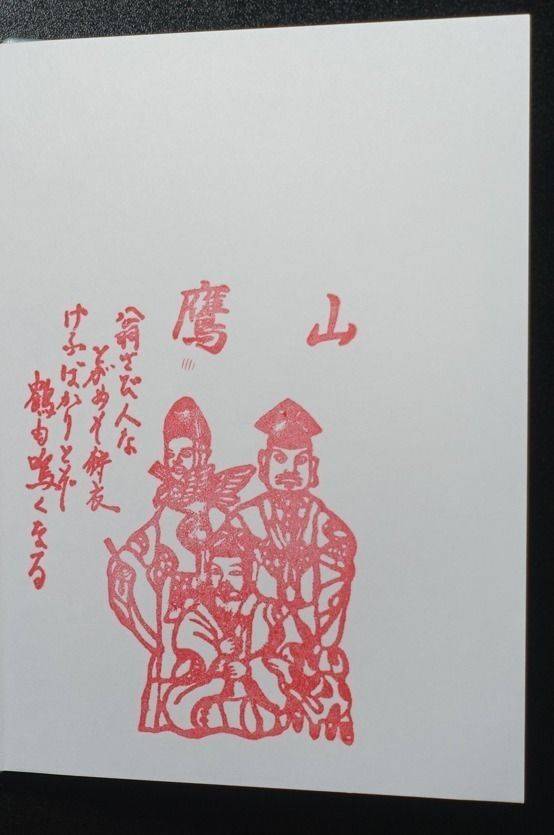 鷹山
翁さび人な
とがめそ狩衣
けふばかりとぞ
鶴も鳴くなる